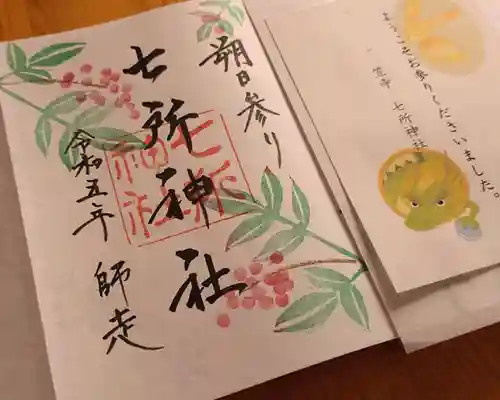 朔日参り
七所神社
七所
神社
令和五年 師走
ようこそお参りくださいました。
一宮守 七所神社